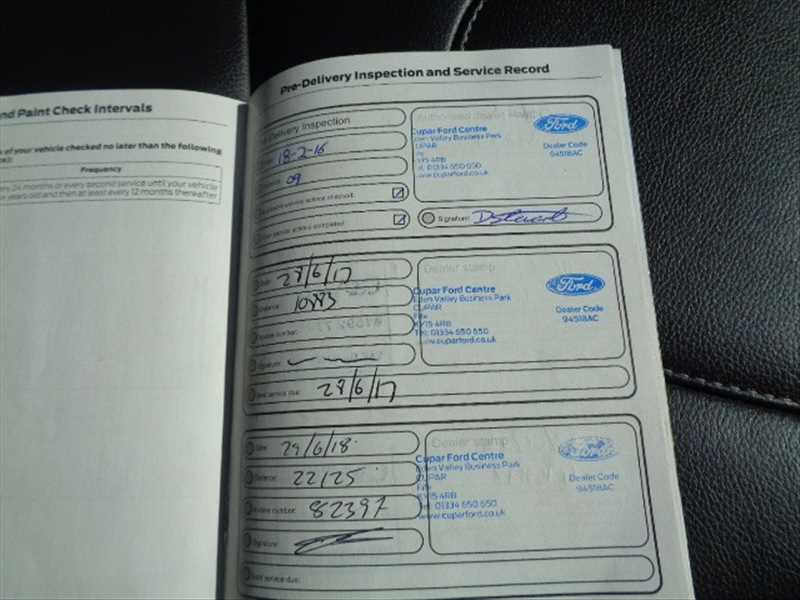 nd Paint Check Intervals
s of your vehicle checked no later than the following
Frequency
ery 24 months or every second service until your vehicle
years old and then at least every 12 months thereafter
Pre-Delivery Inspection and Service Record
Delivery Inspection
18-2-16
09
Authorised dealer
Cupar Ford Centre
Eden Valley Business Park
CUPAR
KY15 4RB
01334 650 650
www.cuparford.co.uk
Ford
Dealer Code
94518AC
Signature:
Date:
28/6/17
Distance:
10883
number:
Signature:
service due:
28/6/17
Dealer stamp
Cupar Ford Centre
Eden Valley Business Park
CUPAR
Fife
KY15 4RB
Tel: 01334 650 650
www.cuparford.co.uk
Ford
Dealer Code
94518AC
Date:
29/6/18
Distance:
22125
number:
82397
Signature:
service due:
Dealer stamp
Cupar Ford Centre
Eden Valley Business Park
CUPAR
Fife
KY15 4RB
Tel: 01334 650 650
www.cuparford.co.uk
Ford
Dealer Code
94518AC